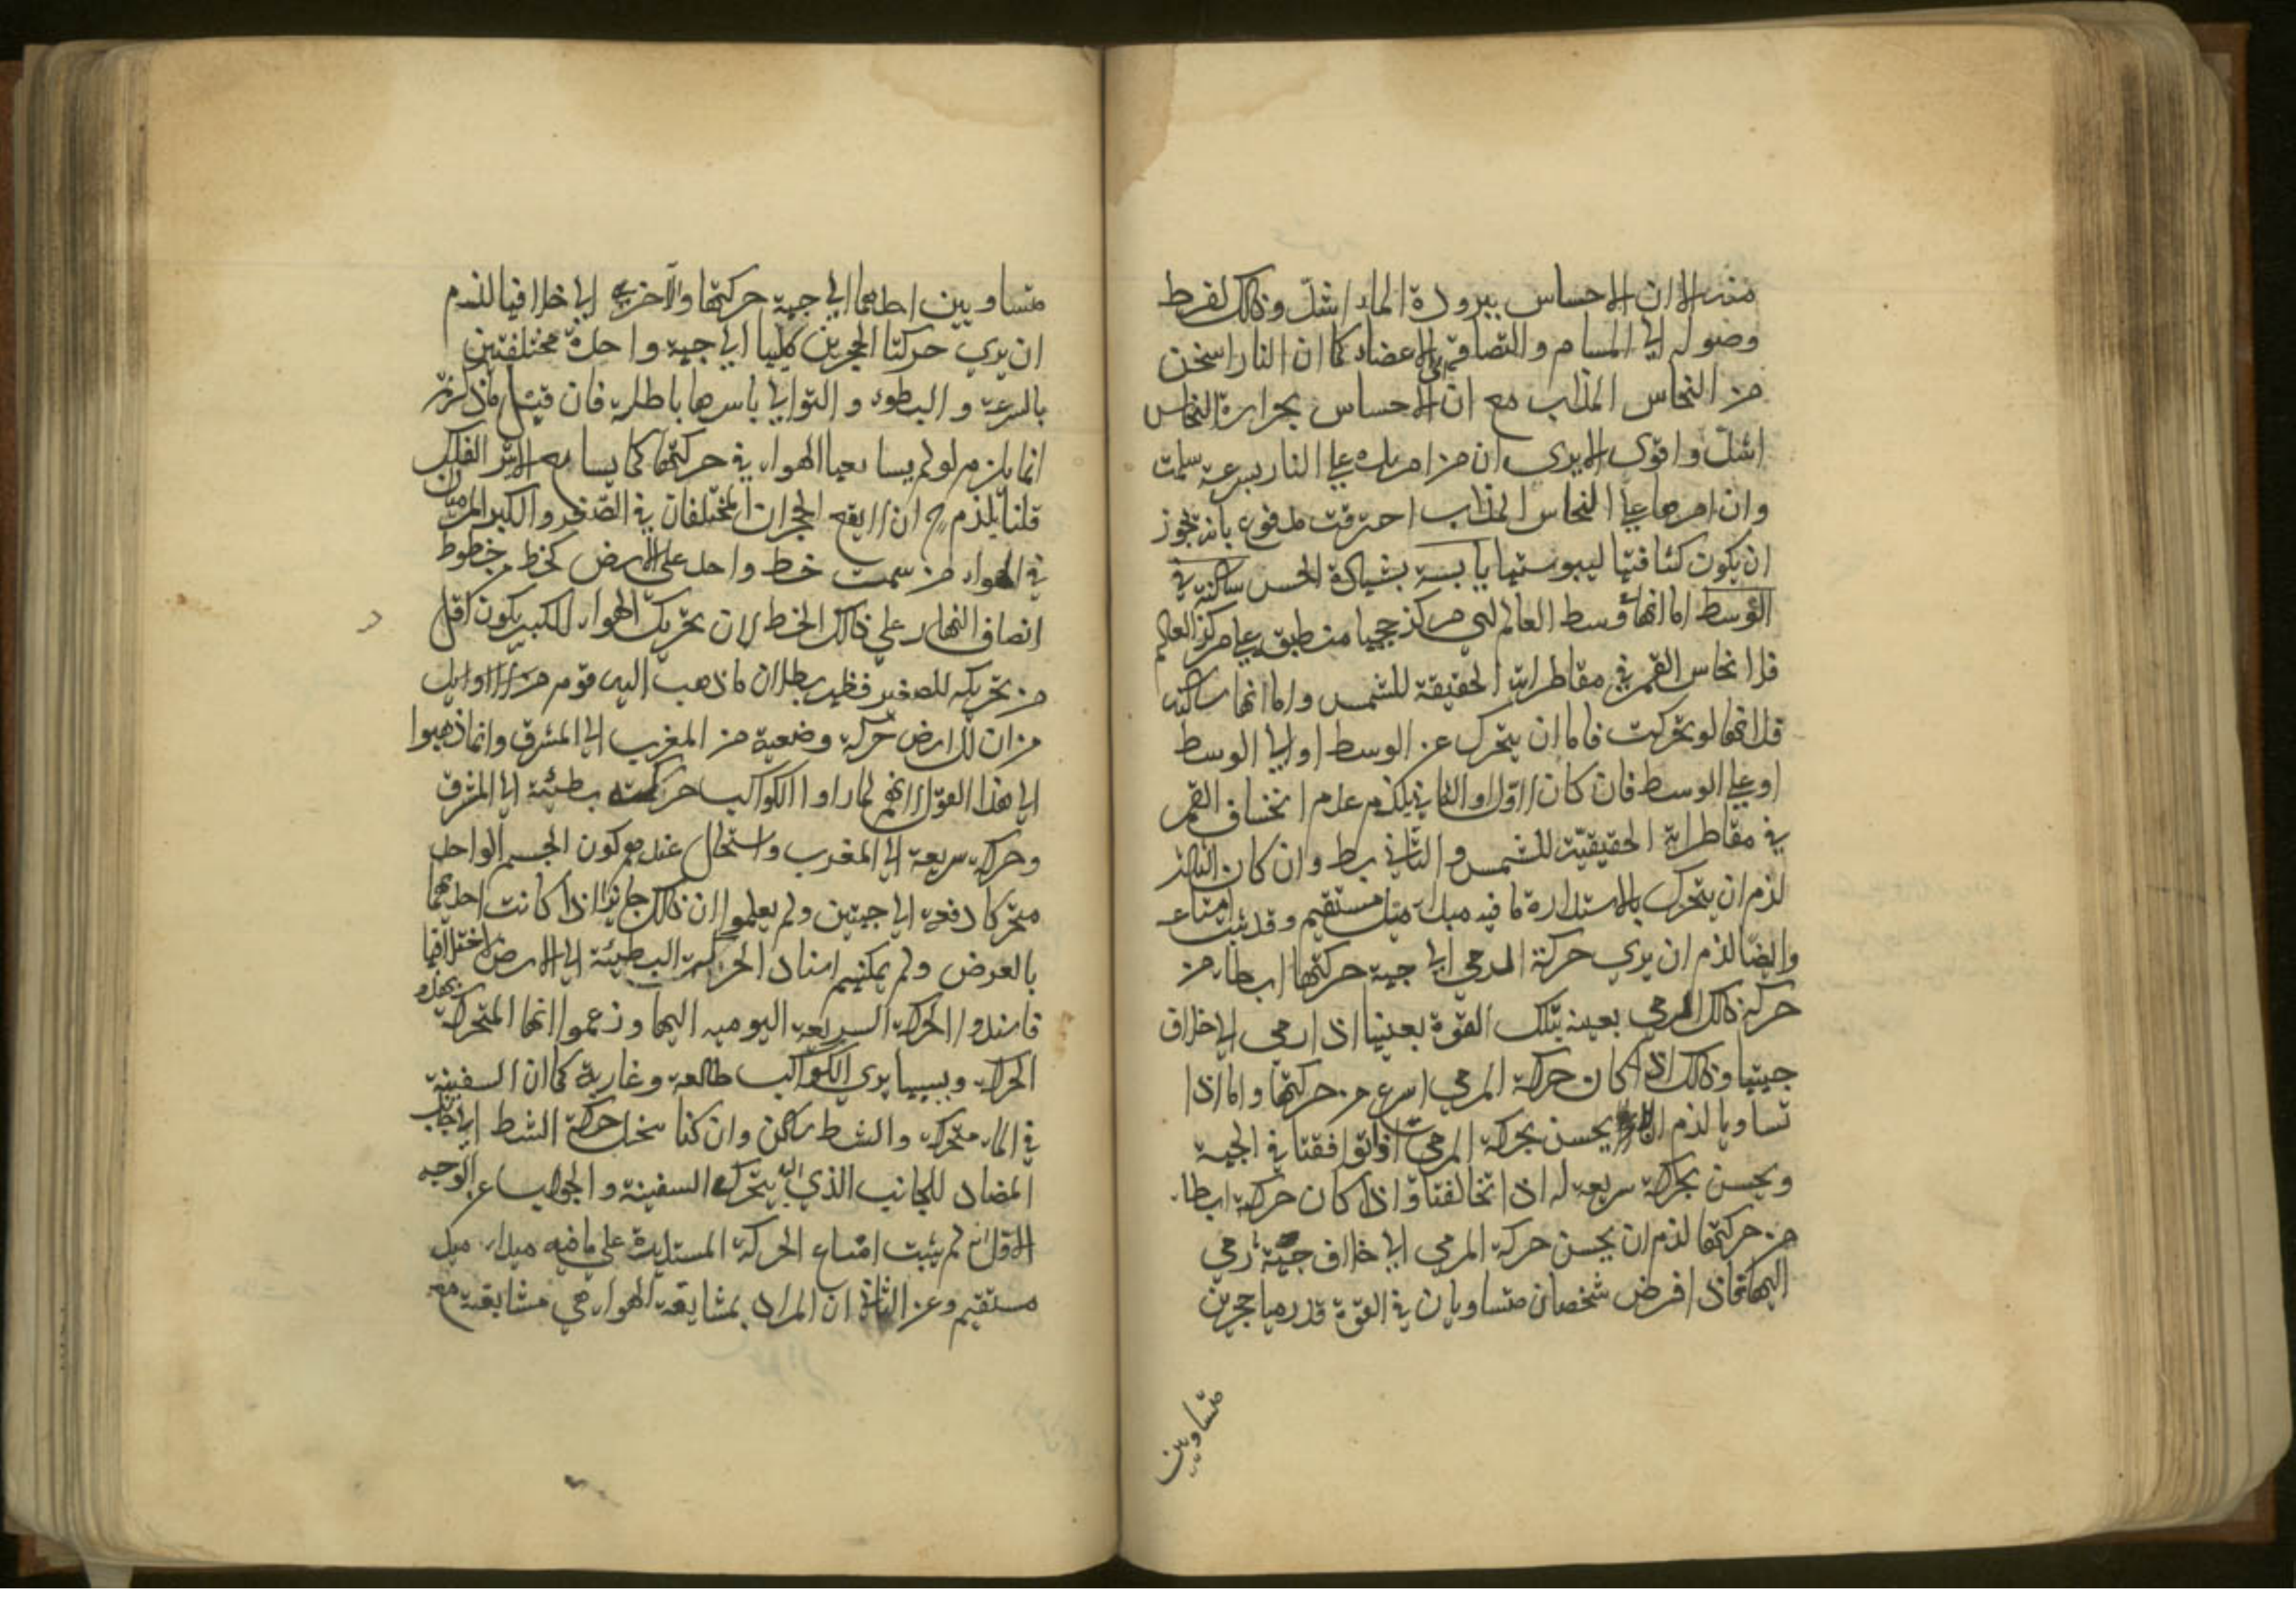 منه الا ان الاحساس ببرودة الماء اشد وذلك لفرط
وصوله الي المسام والتصاقه الي الاعضاء كما ان النار اسخن
من النحاس المذاب مع ان الاحساس بحرارة النحاس
اشد واقوى الا يرى ان من امر يده علي النار بسرعة سلمت
وان امرها علي النحاس المذاب احترقت مدفوع بانه يجوز
ان يكون كثافتها ليبوستها يابسة بشهادة الحس ساكنة في
الوسط اما انها في وسط العالم اي مركز حجمها منطبق علي مركز العالم
فلانخساف القمر في مقاطراته الحقيقة للشمس واما انها ساكنة
فلانها لو تحركت فاما ان يتحرك عن الوسط او الي الوسط
او علي الوسط فان كان الاول او الثاني يلزم عدم انخساف القمر
في مقاطراته الحقيقيّة للشمس والتالي بط وان كان الثالث
لزم ان يتحرك بالاستدارة ما فيه مبدأ ميل مستقيم وقد ثبت امتناعه
وايضا لزم ان يري حركة المرمي الي جهة حركتها ابطاء من
حركة ذلك المرمي بعينه بتلك القوة بعينها اذا رمي الي خلاف
جهتها وذلك اذا كان حركة المرمي اسرع من حركتها واما اذا
تساويا لزم ان لا يحس بحركة المرمي اذا توافقتا في الجهة
ويحس بحركة سريعة له اذا تخالفتا واذا كان حركته ابطاء
من حركتها لزم ان يحس حركة المرمي الي خلاف جهة رمي
اليها فاذا فرض شخصان متساويان في القوة قد رميا حجرين
متساويين
متساويين احدهما الي جهة حركتها والاخري الي خلافها لزم
ان يري حركتا الحجرين كليهما الي جهة واحدة مختلفتين
بالسرعة والبطوء والتوالي باسرها باطلة فان قيل ما ذكرتم
انما يلزم لو لم يشايعها الهواء في حركتها كما يشايع الاثير الفلك
قلنا يلزم ح ان لا يقع الحجران المختلفان في الصغر والكبر المرميان
في الهواء من سمت خط واحد علي الارض كخط من خطوط
انصاف النهار علي ذلك الخط لان تحريك الهواء للكبير يكون اقل
من تحريكه للصغير فظهر بطلان ما ذهب اليه قوم من الاوايل
من ان للارض حركة وضعية من المغرب الي المشرق وانما ذهبوا
الي هذا القول لانهم لما راوا الكواكب حركت بطيئة الي المشرق
وحركة سريعة الي المغرب واستحال عندهم كون الجسم الواحد
متحركا دفعة الي جهتين ولم يعلموا ان ذلك جايز اذا كانت احديهما
بالعرض ولم يمكنهم اسناد الحركة البطيئة الي الارض لاختلافها
فاسندوا الحركة السريعة اليومية اليها وزعموا انها المتحركة بهذه
الحركة وبسببها يري الكواكب طالعة وغاربة كما ان السفينة
في الماء متحركة والشط ساكن وان كنا نتخيل حركة الشط الي جانب
المضاد للجانب الذي اليه يتحرك السفينة والجواب عن الوجه
الاول انه لم يثبت امتناع الحركة المستديرة علي ما فيه مبداء ميل
مستقيم وعن الثاني ان المراد بمشايعة الهواء هي مشايعته مع